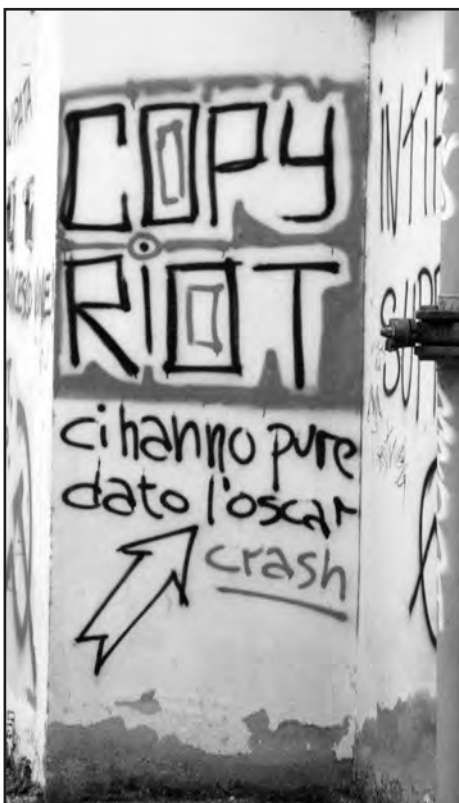 COPY
RIOT
ci hanno pure
dato l'oscar
crash
INTIF
SUPP